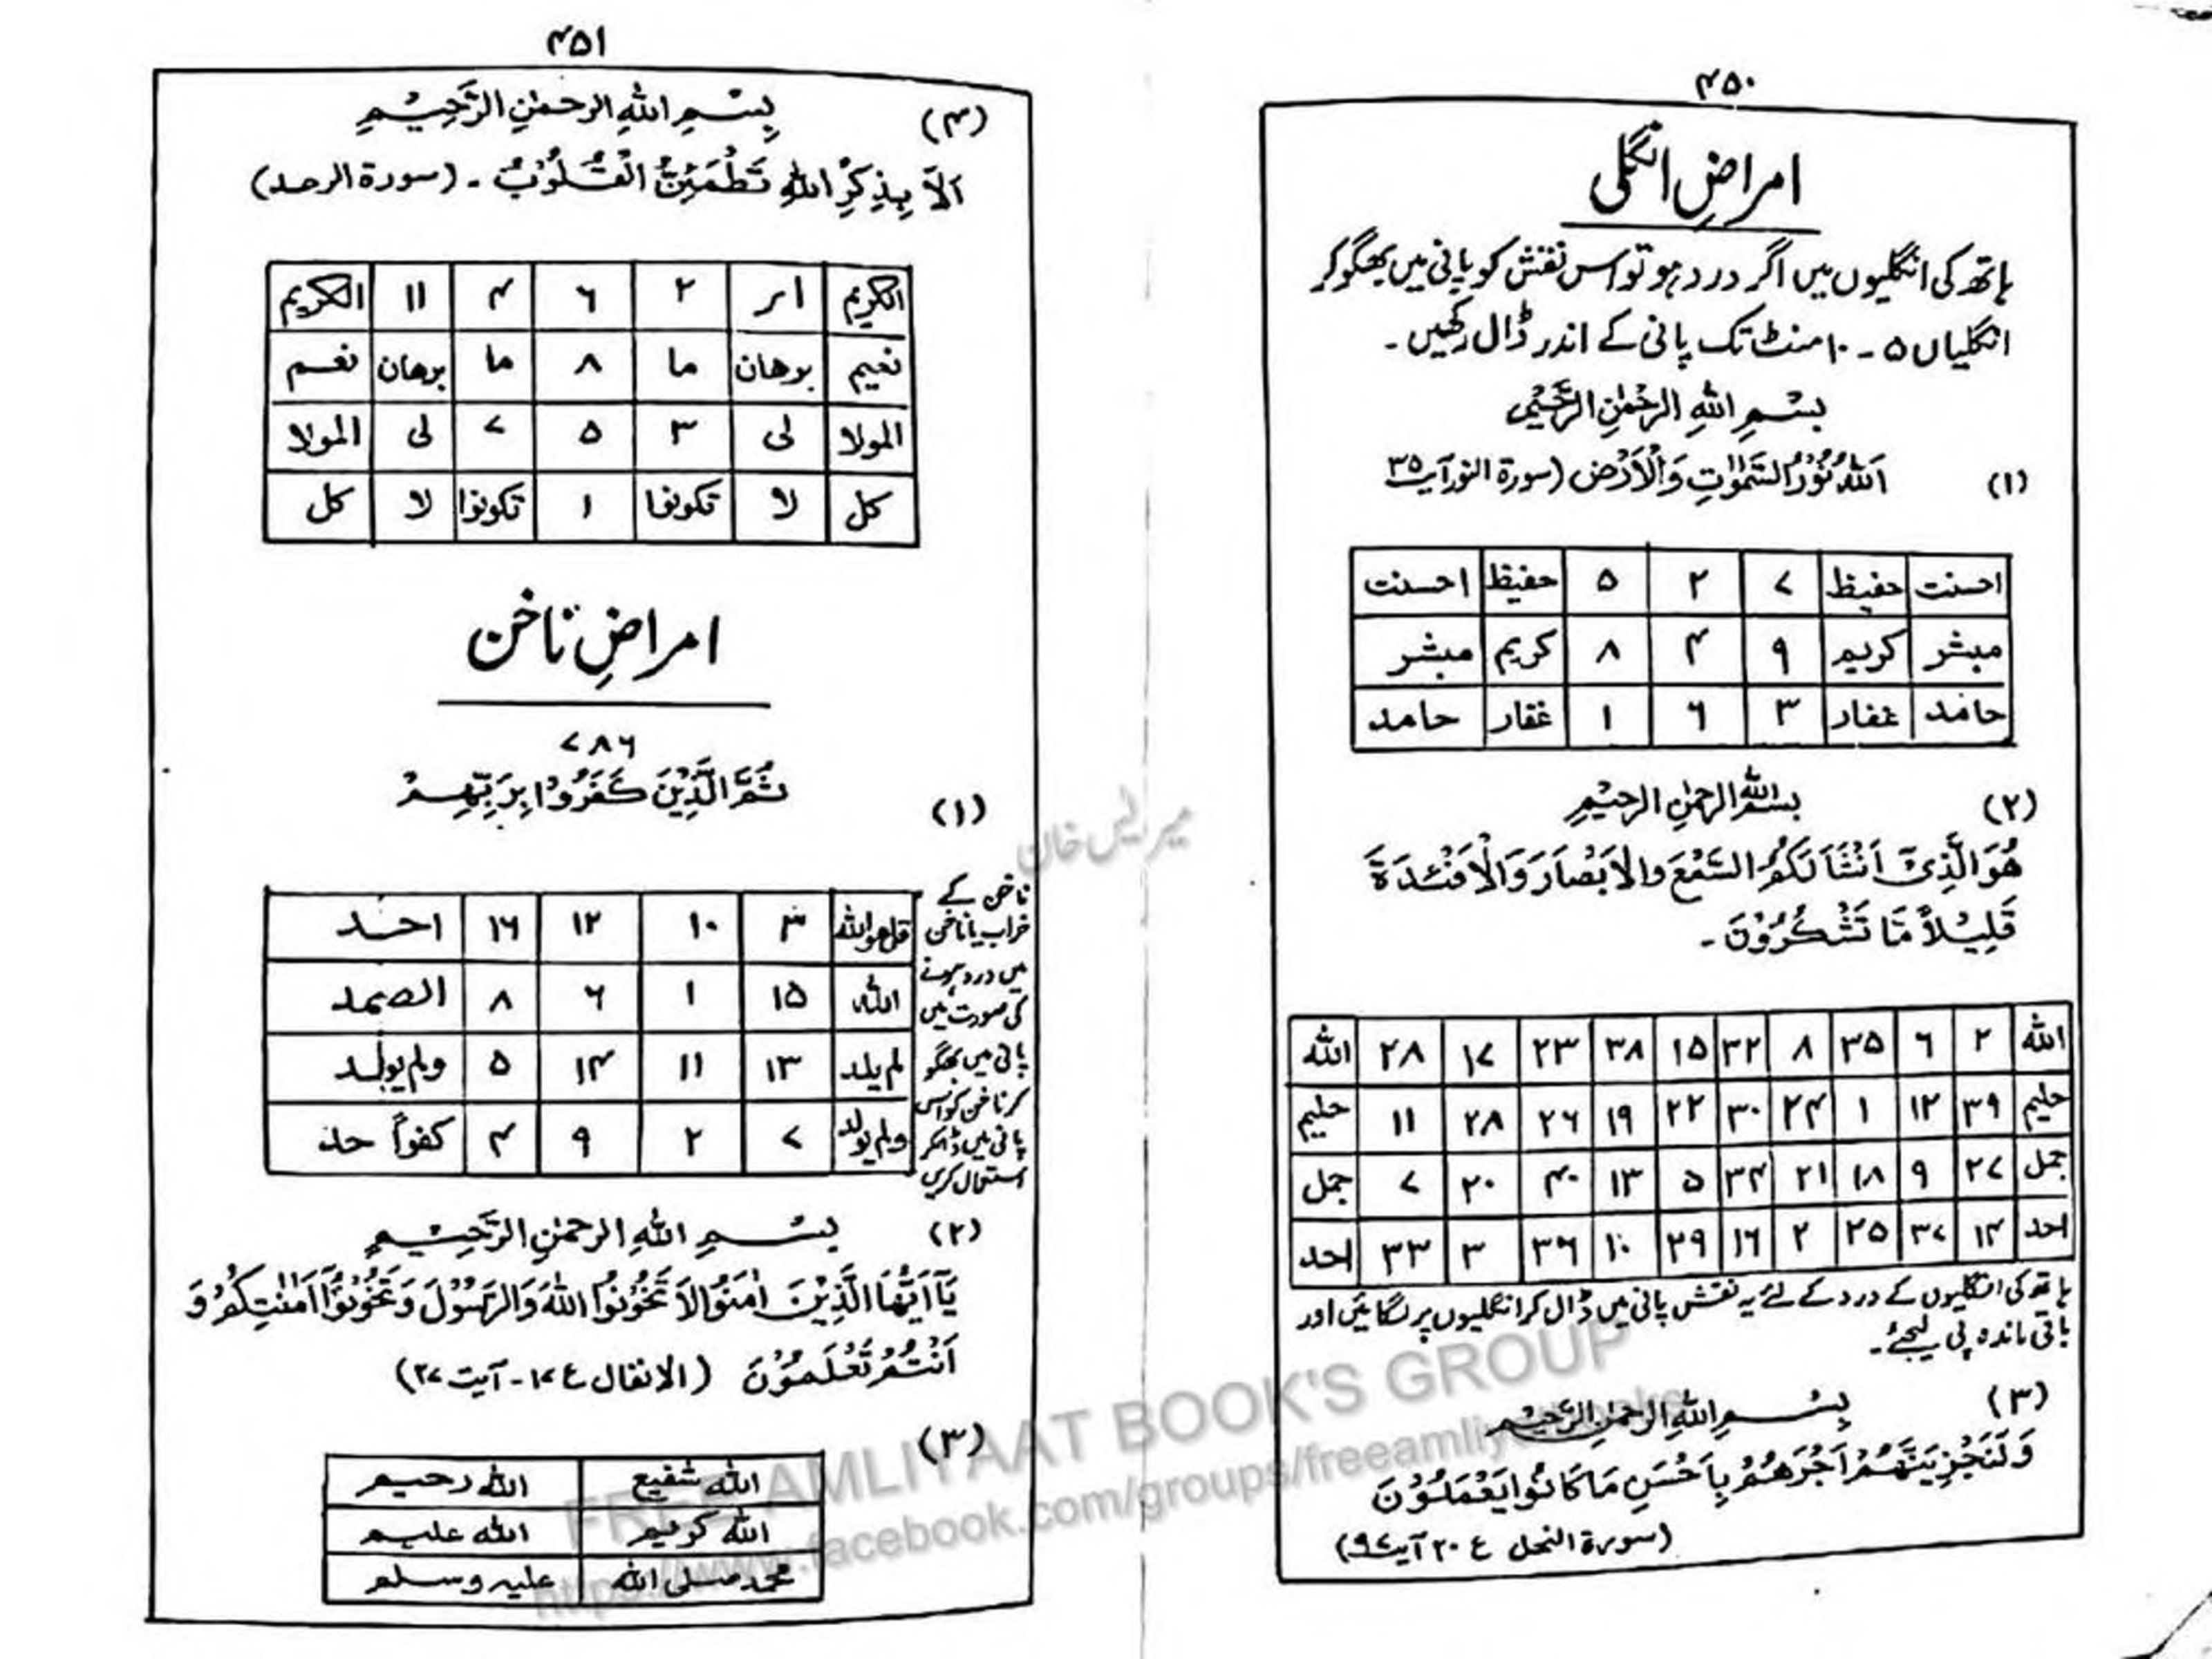 ۴۵۰
امراضِ انگلی
ہاتھ کی انگلیوں میں اگر درد ہو تو اس نقش کو پانی میں بھگو کر
انگلیاں ۵ - ۱۰ منٹ تک پانی کے اندر ڈال رکھیں ۔
بِسْمِ اللهِ الرَّحْمٰنِ الرَّحِیْمِ
(۱) اَللهُ نُوْرُ السَّمٰوٰتِ وَالْاَرْضِ (سورۃ النور آیت ۳۵
احسنت حفیظ ۷ ۲ ۵ حفیظ احسنت
مبشر کریم ۹ ۴ ۸ کریم مبشر
حامد غفار ۳ ۶ ۱ غفار حامد
(۲) بسم الله الرحمٰن الرحیم
هُوَ الَّذِیْ اَنْشَاَ لَكُمُ السَّمْعَ وَالْاَبْصَارَ وَالْاَفْئِدَةَ
قَلِیْلاً مَّا تَشْكُرُوْنَ ۔
الله ۲ ۶ ۳۵ ۸ ۳۲ ۱۵ ۳۸ ۲۳ ۱۷ ۲۸ الله
حلیم ۳۹ ۱۲ ۱ ۲۴ ۳۰ ۲۲ ۱۹ ۲۶ ۲۸ ۱۱ حلیم
جمل ۲۷ ۹ ۱۸ ۲۱ ۳۴ ۵ ۱۳ ۴۰ ۲۰ ۷ جمل
احد ۱۴ ۳۷ ۲۵ ۲ ۱۶ ۲۹ ۱۰ ۳۶ ۳ ۳۳ احد
ہاتھ کی انگلیوں کے درد کے لئے یہ نقش پانی میں ڈال کر انگلیوں پر لگائیں اور
باقی ماندہ پی لیجئے ۔
(۳) بِسْمِ اللهِ الرحمٰنِ الرَّحِیْمِ
وَلَنَجْزِیَنَّهُمْ اَجْرَهُمْ بِاَحْسَنِ مَا كَانُوا یَعْمَلُوْنَ
(سورۃ النحل ع ۲۰ آیت ۹۷)
۴۵۱
(۴) بِسْمِ اللهِ الرحمٰنِ الرَّحِیْمِ
اَلاَ بِذِكْرِ اللهِ تَطْمَئِنُّ الْقُلُوْبُ ۔ (سورۃ الرعد)
الکریم ار ۲ ۶ ۴ ۱۱ الکریم
نعیم برهان ما ۸ ما برهان نعم
المولا لی ۳ ۵ ۷ لی المولا
کل لا تکونوا ۱ تکونوا لا کل
امراضِ ناخن
۷۸۶
(۱) ثُمَّ الَّذِیْنَ كَفَرُوْا بِرَبِّهِمْ
قل هو الله ۳ ۱۰ ۱۲ ۱۶ احد
الله ۱۵ ۱ ۶ ۸ الصمد
لم یلد ۱۳ ۱۱ ۱۴ ۵ ولم یولد
ولم یولد ۷ ۲ ۹ ۴ کفواً حد
ناخن کے
خراب یا ناخن
میں درد ہونے
کی صورت میں
پانی میں بھگو
کر ناخن کو اس
پانی میں ڈالکر
استعمال کریں
(۲) بِسْمِ اللهِ الرحمٰنِ الرَّحِیْمِ
یَآ اَیُّهَا الَّذِیْنَ اٰمَنُوا لاَ تَخُوْنُوا اللهَ وَالرَّسُوْلَ وَتَخُوْنُوْٓا اَمٰنٰتِكُمْ وَ
اَنْتُمْ تَعْلَمُوْنَ (الانفال ع ۱۷ - آیت ۲۷)
(۳)
الله شفیع الله رحیم
الله کریم الله علیم
محمد صلی الله علیہ وسلم
FREE AMLIYAAT BOOK'S GROUP
https://www.facebook.com/groups/freeamliyatbooks